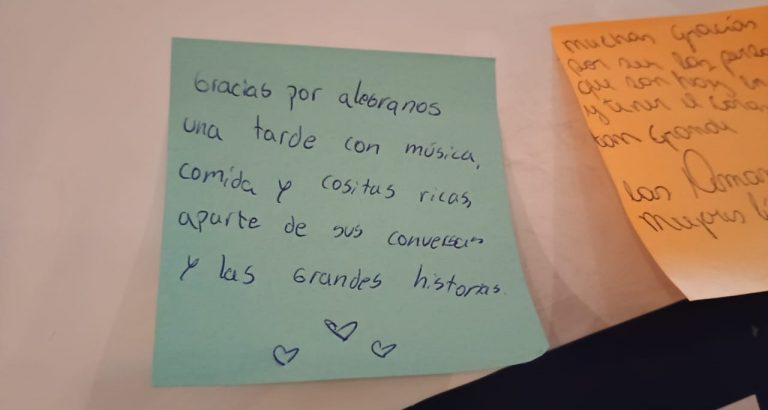 Gracias por alegranos
una tarde con música,
comida y cositas ricas,
aparte de sus conversas
y las Grandes historias.
muchas gracias
por ser las
que son hoy
y tener el
tan grande
las